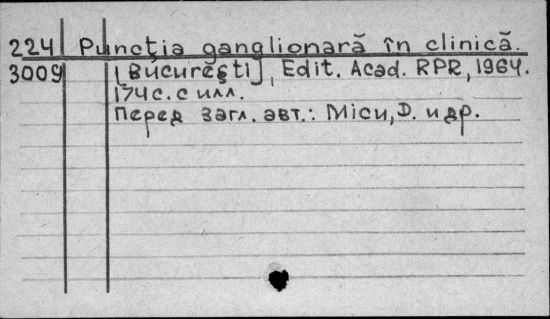 224 Puncția ganglionară în clinică.
3009 [București], Edit. Acad. RPR, 1964.
174 с. с илл.
Перед загл. авт.: Micu, D. и др.